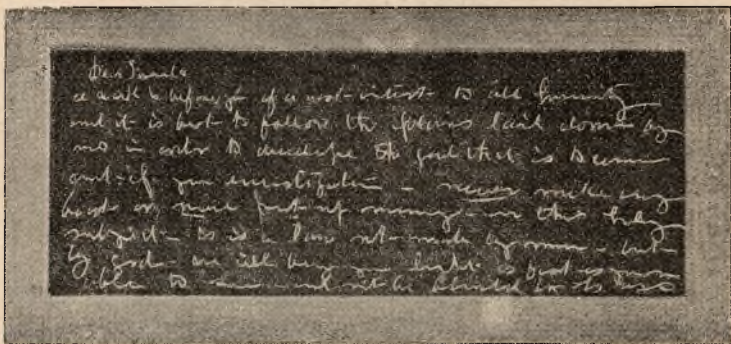 Dear Friends
a work before of a most interest to all humanity
and it is best to follow the plans laid down by
me in order to develope the good that is to come
out of your investigation — never make any
boast or more put up money — on this holy
subject — is is a Law not made by man — but
by god — we all bring you light as fast as your
able to and not be blinded in its